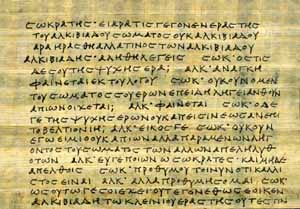 ϹΩΚΡΑΤΗϹ· ΕΙ ΑΡΑ ΤΙϹ ΓΕΓΟΝΕΝ ΕΡΑϹΤΗϹ
ΤΟΥ ΑΛΚΙΒΙΑΔΟΥ ϹΩΜΑΤΟϹ ΟΥΚ ΑΛΚΙΒΙΑΔΟΥ
ΑΡΑ ΗΡΑϹΘΗ ΑΛΛΑ ΤΙΝΟϹ ΤΩΝ ΑΛΚΙΒΙΑΔΟΥ
ΑΛΚΙΒΙΑΔΗϹ· ΑΛΗΘΗ ΛΕΓΕΙϹ ϹΩΚ· ΟϹΤΙϹ
ΔΕ ϹΟΥ ΤΗϹ ΨΥΧΗϹ ΕΡΑ; ΑΛΚ· ΑΝΑΓΚΗ
ΦΑΙΝΕΤΑΙ ΕΚ ΤΟΥ ΛΟΓΟΥ ϹΩΚ· ΟΥΚΟΥΝ Ο ΜΕΝ
ΤΟΥ ϹΩΜΑΤΟϹ ϹΟΥ ΕΡΩΝ ΕΠΕΙΔΗ ΛΗΓΕΙ ΑΝΘΟΥΝ
ΑΠΙΩΝ ΟΙΧΕΤΑΙ; ΑΛΚ· ΦΑΙΝΕΤΑΙ ϹΩΚ· Ο ΔΕ
ΓΕ ΤΗϹ ΨΥΧΗϹ ΕΡΩΝ ΟΥΚ ΑΠΕΙϹΙΝ ΕΩϹ ΑΝ ΕΠΙ
ΤΟ ΒΕΛΤΙΟΝ ΙΗ; ΑΛΚ· ΕΙΚΟϹ ΓΕ ϹΩΚ· ΟΥΚΟΥΝ
ΕΓΩ ΕΙΜΙ Ο ΟΥΚ ΑΠΙΩΝ ΑΛΛΑ ΠΑΡΑΜΕΝΩΝ ΛΗ
ΓΟΝΤΟϹ ΤΟΥ ϹΩΜΑΤΟϹ ΤΩΝ ΑΛΛΩΝ ΑΠΕΛΗΛΥΘ
ΟΤΩΝ ΑΛΚ· ΕΥ ΓΕ ΠΟΙΩΝ Ω ϹΩΚΡΑΤΕϹ· ΚΑΙ ΜΗ
ΑΠΕΛΘΟΙϹ ϹΩΚ· ΠΡΟΘΥΜΟΥ ΤΟΙΝΥΝ ΟΤΙ ΚΑΛΛΙ
ϹΤΟϹ ΕΙΝΑΙ ΑΛΚ· ΑΛΛΑ ΠΡΟΘΥΜΗϹΟΜΑΙ ϹΩΚ·
ΩϹ ΟΥΤΩ ΓΕ ϹΟΙ ΕΧΕΙ ΟΥΤ ΕΓΕΝΕΘ ΩϹ ΕΟΙΚΕΝ
ΑΛΚΙΒΙΑΔΗ ΤΩ ΚΛΕΙΝΙΟΥ ΕΡΑϹΤΗϹ ΟΥΤ ΕϹΤΙΝ